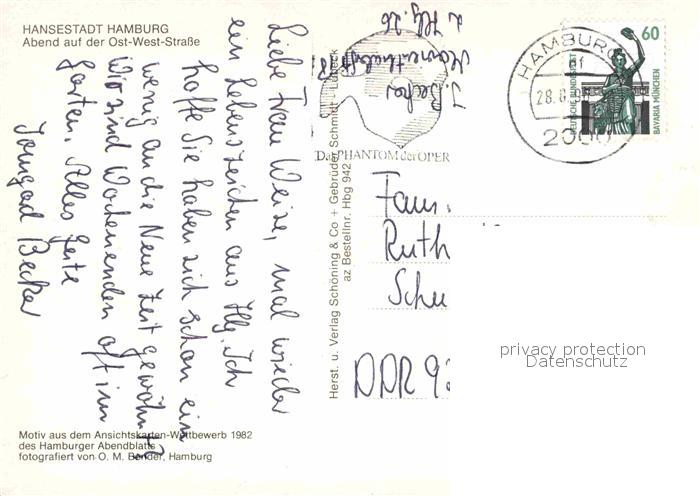 HANSESTADT HAMBURG
Abend auf der Ost-West-Straße
Liebe Frau Weize, mal wieder
ein Lebenszeichen aus Hbg. Ich
hoffe Sie haben sich schon ein
wenig an die Neue Zeit gewöhnt?
Wir sind Wochenenden oft im
Garten. Alles Gute
Becker
Motiv aus dem Ansichtskarten-Wettbewerb 1982
des Hamburger Abendblatts
fotografiert von O. M. Bender, Hamburg
Herst. u. Verlag Schöning & Co + Gebrüder Schmidt · Lübeck
az Bestellnr. Hbg 942
J. Becker
2 Hbg. 26
Das PHANTOM der OPER
HAMBURG
28.6.
2000
60
DEUTSCHE BUNDESPOST
BAVARIA MÜNCHEN
Fam.
Ruth
Schu
DDR 9
privacy protection
Datenschutz